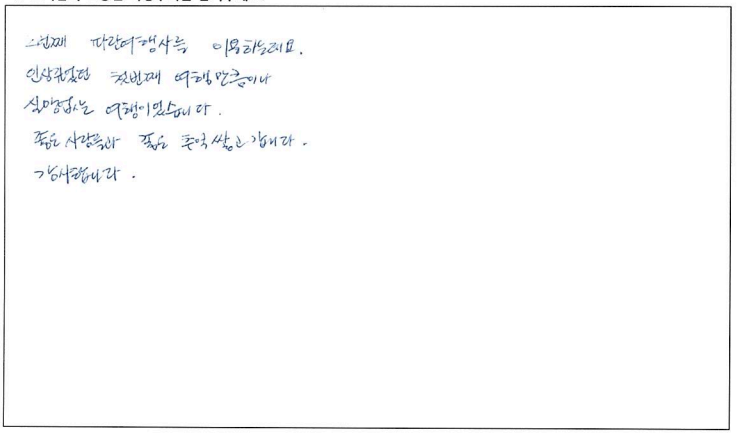 두번째 파란여행사를 이용하는데요.
인상깊었던 첫번째 여행만큼이나
실망없는 여행이었습니다.
좋은 사람들과 좋은 추억 쌓고 갑니다.
감사합니다.